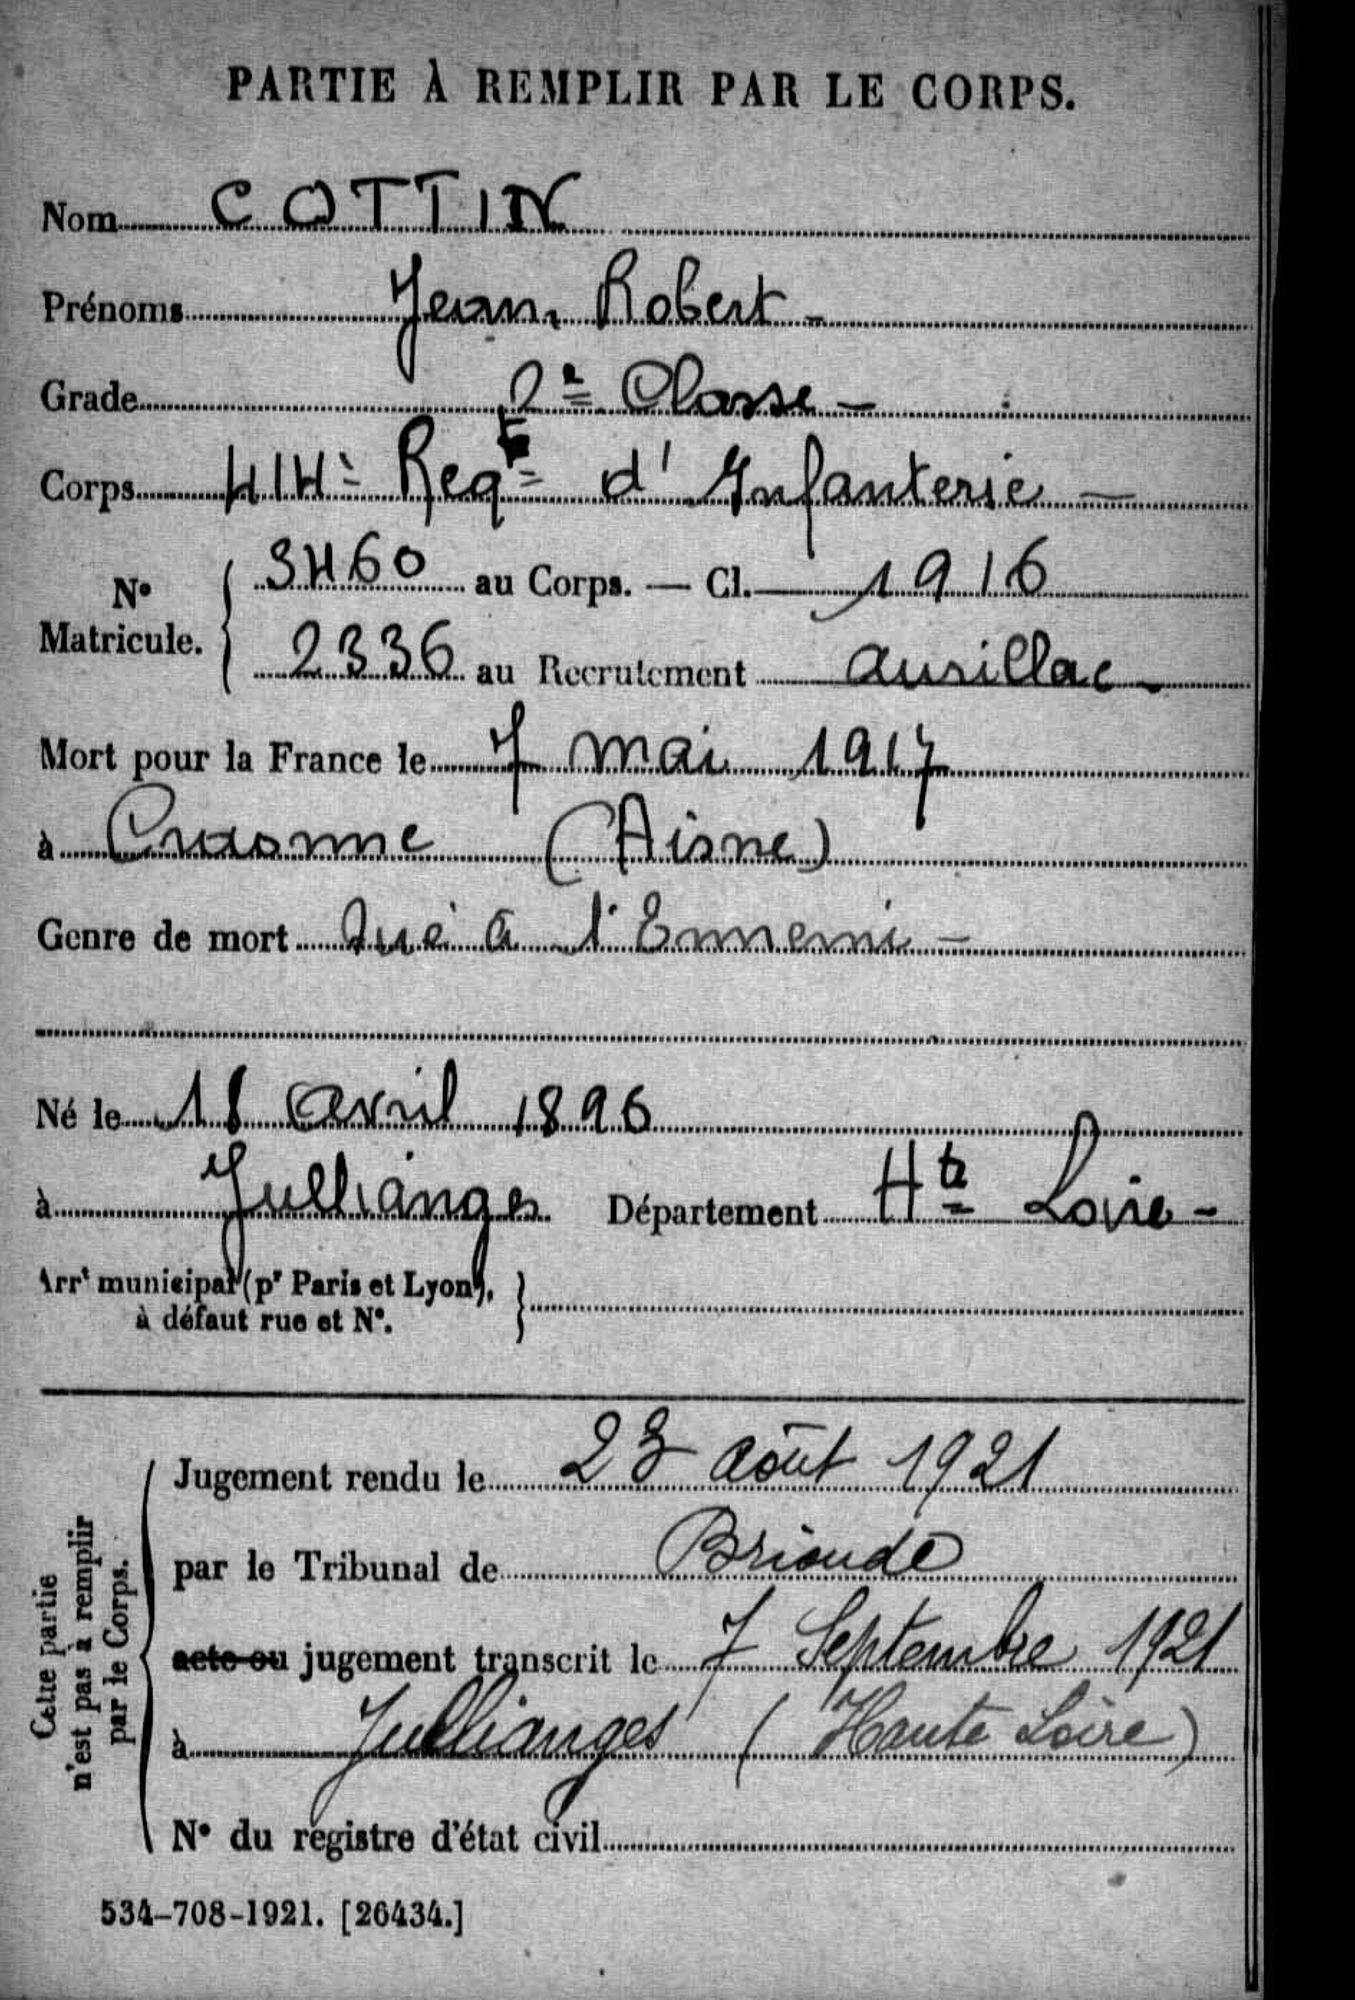 PARTIE À REMPLIR PAR LE CORPS.
Nom COTTIN
Prénoms Jean Robert -
Grade 2e Classe -
Corps 414e Regt d'Infanterie -
No Matricule. 3460 au Corps. — Cl. 1916
2336 au Recrutement Aurillac -
Mort pour la France le 7 mai 1917
à Craonne (Aisne)
Genre de mort Tué à l'Ennemi -
Né le 18 Avril 1896
à Jullianges Département Hte Loire -
Arrt municipal (pr Paris et Lyon),
à défaut rue et No.
Cette partie
n'est pas à remplir
par le Corps.
Jugement rendu le 23 Août 1921
par le Tribunal de Brioude
acte ou jugement transcrit le 7 Septembre 1921
à Jullianges (Haute Loire)
No du registre d'état civil
534-708-1921. [26434.]